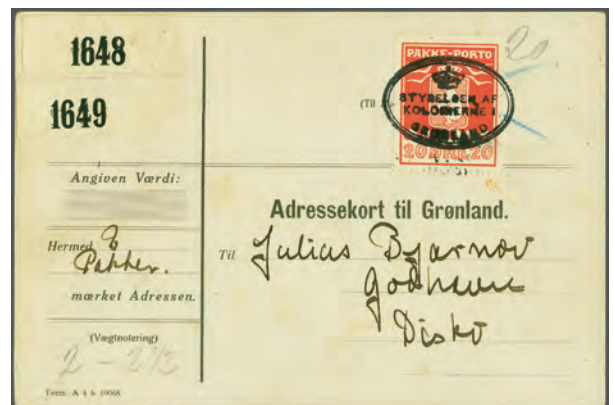 1648
1649
Angiven Værdi:
Hermed
Pakker.
mærket Adressen.
(Vægtnotering)
2 - 2 1/3
Form. A 4 b
20
PAKKE-PORTO
STYRELSEN AF
KOLONIERNE I
GRØNLAND
20 ØRE 20
(Til
Adressekort til Grønland.
Til Julius Bjarnov
Godhavn
Disko